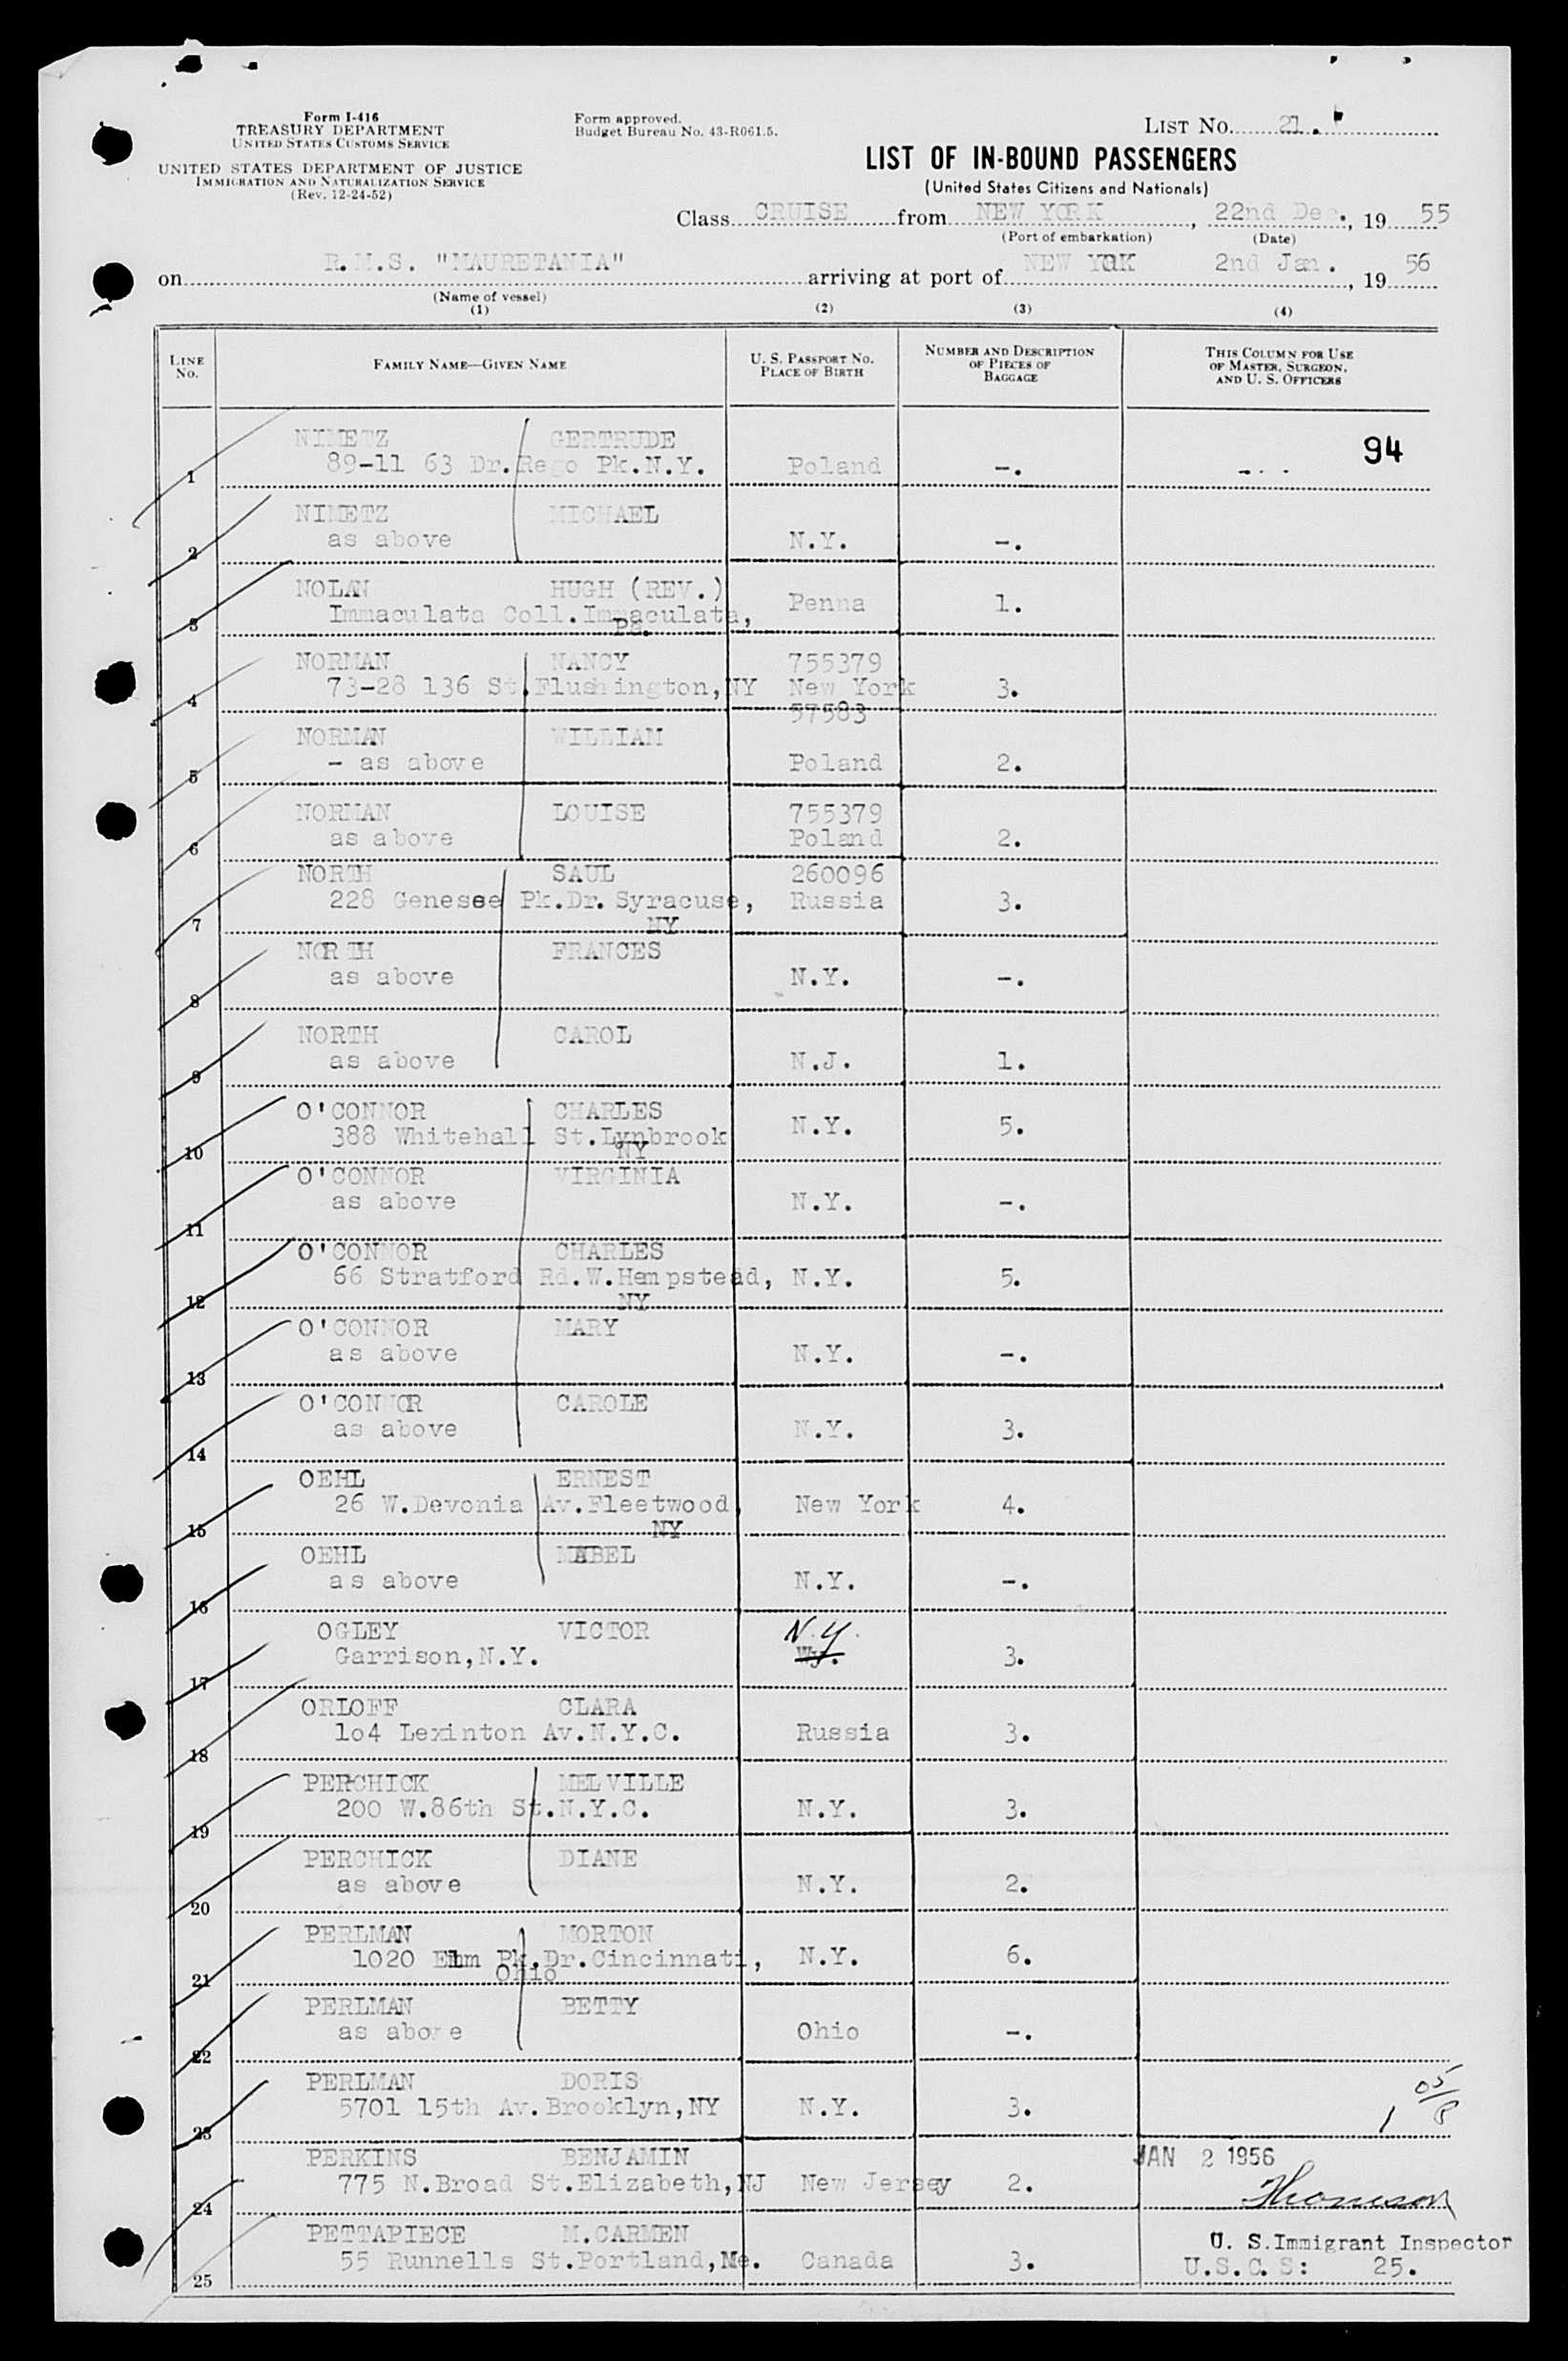 Form I-416
TREASURY DEPARTMENT
UNITED STATES CUSTOMS SERVICE
UNITED STATES DEPARTMENT OF JUSTICE
IMMIGRATION AND NATURALIZATION SERVICE
(Rev. 12-24-52)
Form approved.
Budget Bureau No. 43-R061.5.
LIST NO. 21.
LIST OF IN-BOUND PASSENGERS
(United States Citizens and Nationals)
Class CRUISE from NEW YORK, 22nd Dec., 19 55
(Port of embarkation) (Date)
on R.M.S. "MAURETANIA" arriving at port of NEW YORK 2nd Jan., 19 56
(Name of vessel)
(1) (2) (3) (4)
LINE NO. FAMILY NAME—GIVEN NAME U. S. PASSPORT NO. PLACE OF BIRTH NUMBER AND DESCRIPTION OF PIECES OF BAGGAGE THIS COLUMN FOR USE OF MASTER, SURGEON, AND U. S. OFFICERS
NIMETZ GERTRUDE 94
1 89-11 63 Dr.Rego Pk.N.Y. Poland -. -..
NIMETZ MICHAEL
2 as above N.Y. -.
NOLAN HUGH (REV.) Penna 1.
3 Immaculata Coll.Immaculata,
Pa.
NORMAN NANCY 755379
4 73-28 136 St.Flushington,NY New York 3.
57583
NORMAN WILLIAM
5 - as above Poland 2.
NORMAN LOUISE 755379
6 as above Poland 2.
NORTH SAUL 260096
7 228 Genesee Pk.Dr.Syracuse, Russia 3.
NY
NORTH FRANCES
8 as above N.Y. -.
NORTH CAROL
9 as above N.J. 1.
O'CONNOR CHARLES N.Y. 5.
10 388 Whitehall St.Lynbrook
NY
O'CONNOR VIRGINIA
11 as above N.Y. -.
O'CONNOR CHARLES
12 66 Stratford Rd.W.Hempstead, N.Y. 5.
NY
O'CONNOR MARY
13 as above N.Y. -.
O'CONNOR CAROLE
14 as above N.Y. 3.
OEHL ERNEST
15 26 W.Devonia Av.Fleetwood, New York 4.
NY
OEHL MABEL
16 as above N.Y. -.
OGLEY VICTOR N.Y.
17 Garrison,N.Y. Wy. 3.
ORLOFF CLARA
18 1o4 Lexinton Av.N.Y.C. Russia 3.
PERCHICK MELVILLE
19 200 W.86th St.N.Y.C. N.Y. 3.
PERCHICK DIANE
20 as above N.Y. 2.
PERLMAN MORTON
21 1020 Elm Pk.Dr.Cincinnati, N.Y. 6.
Ohio
PERLMAN BETTY
22 as above Ohio -.
PERLMAN DORIS
23 5701 15th Av.Brooklyn,NY N.Y. 3.
PERKINS BENJAMIN JAN 2 1956
24 775 N.Broad St.Elizabeth,NJ New Jersey 2. Thomson
PETTAPIECE M.CARMEN U. S.Immigrant Inspector
25 55 Runnells St.Portland,Me. Canada 3. U.S.C.S: 25.